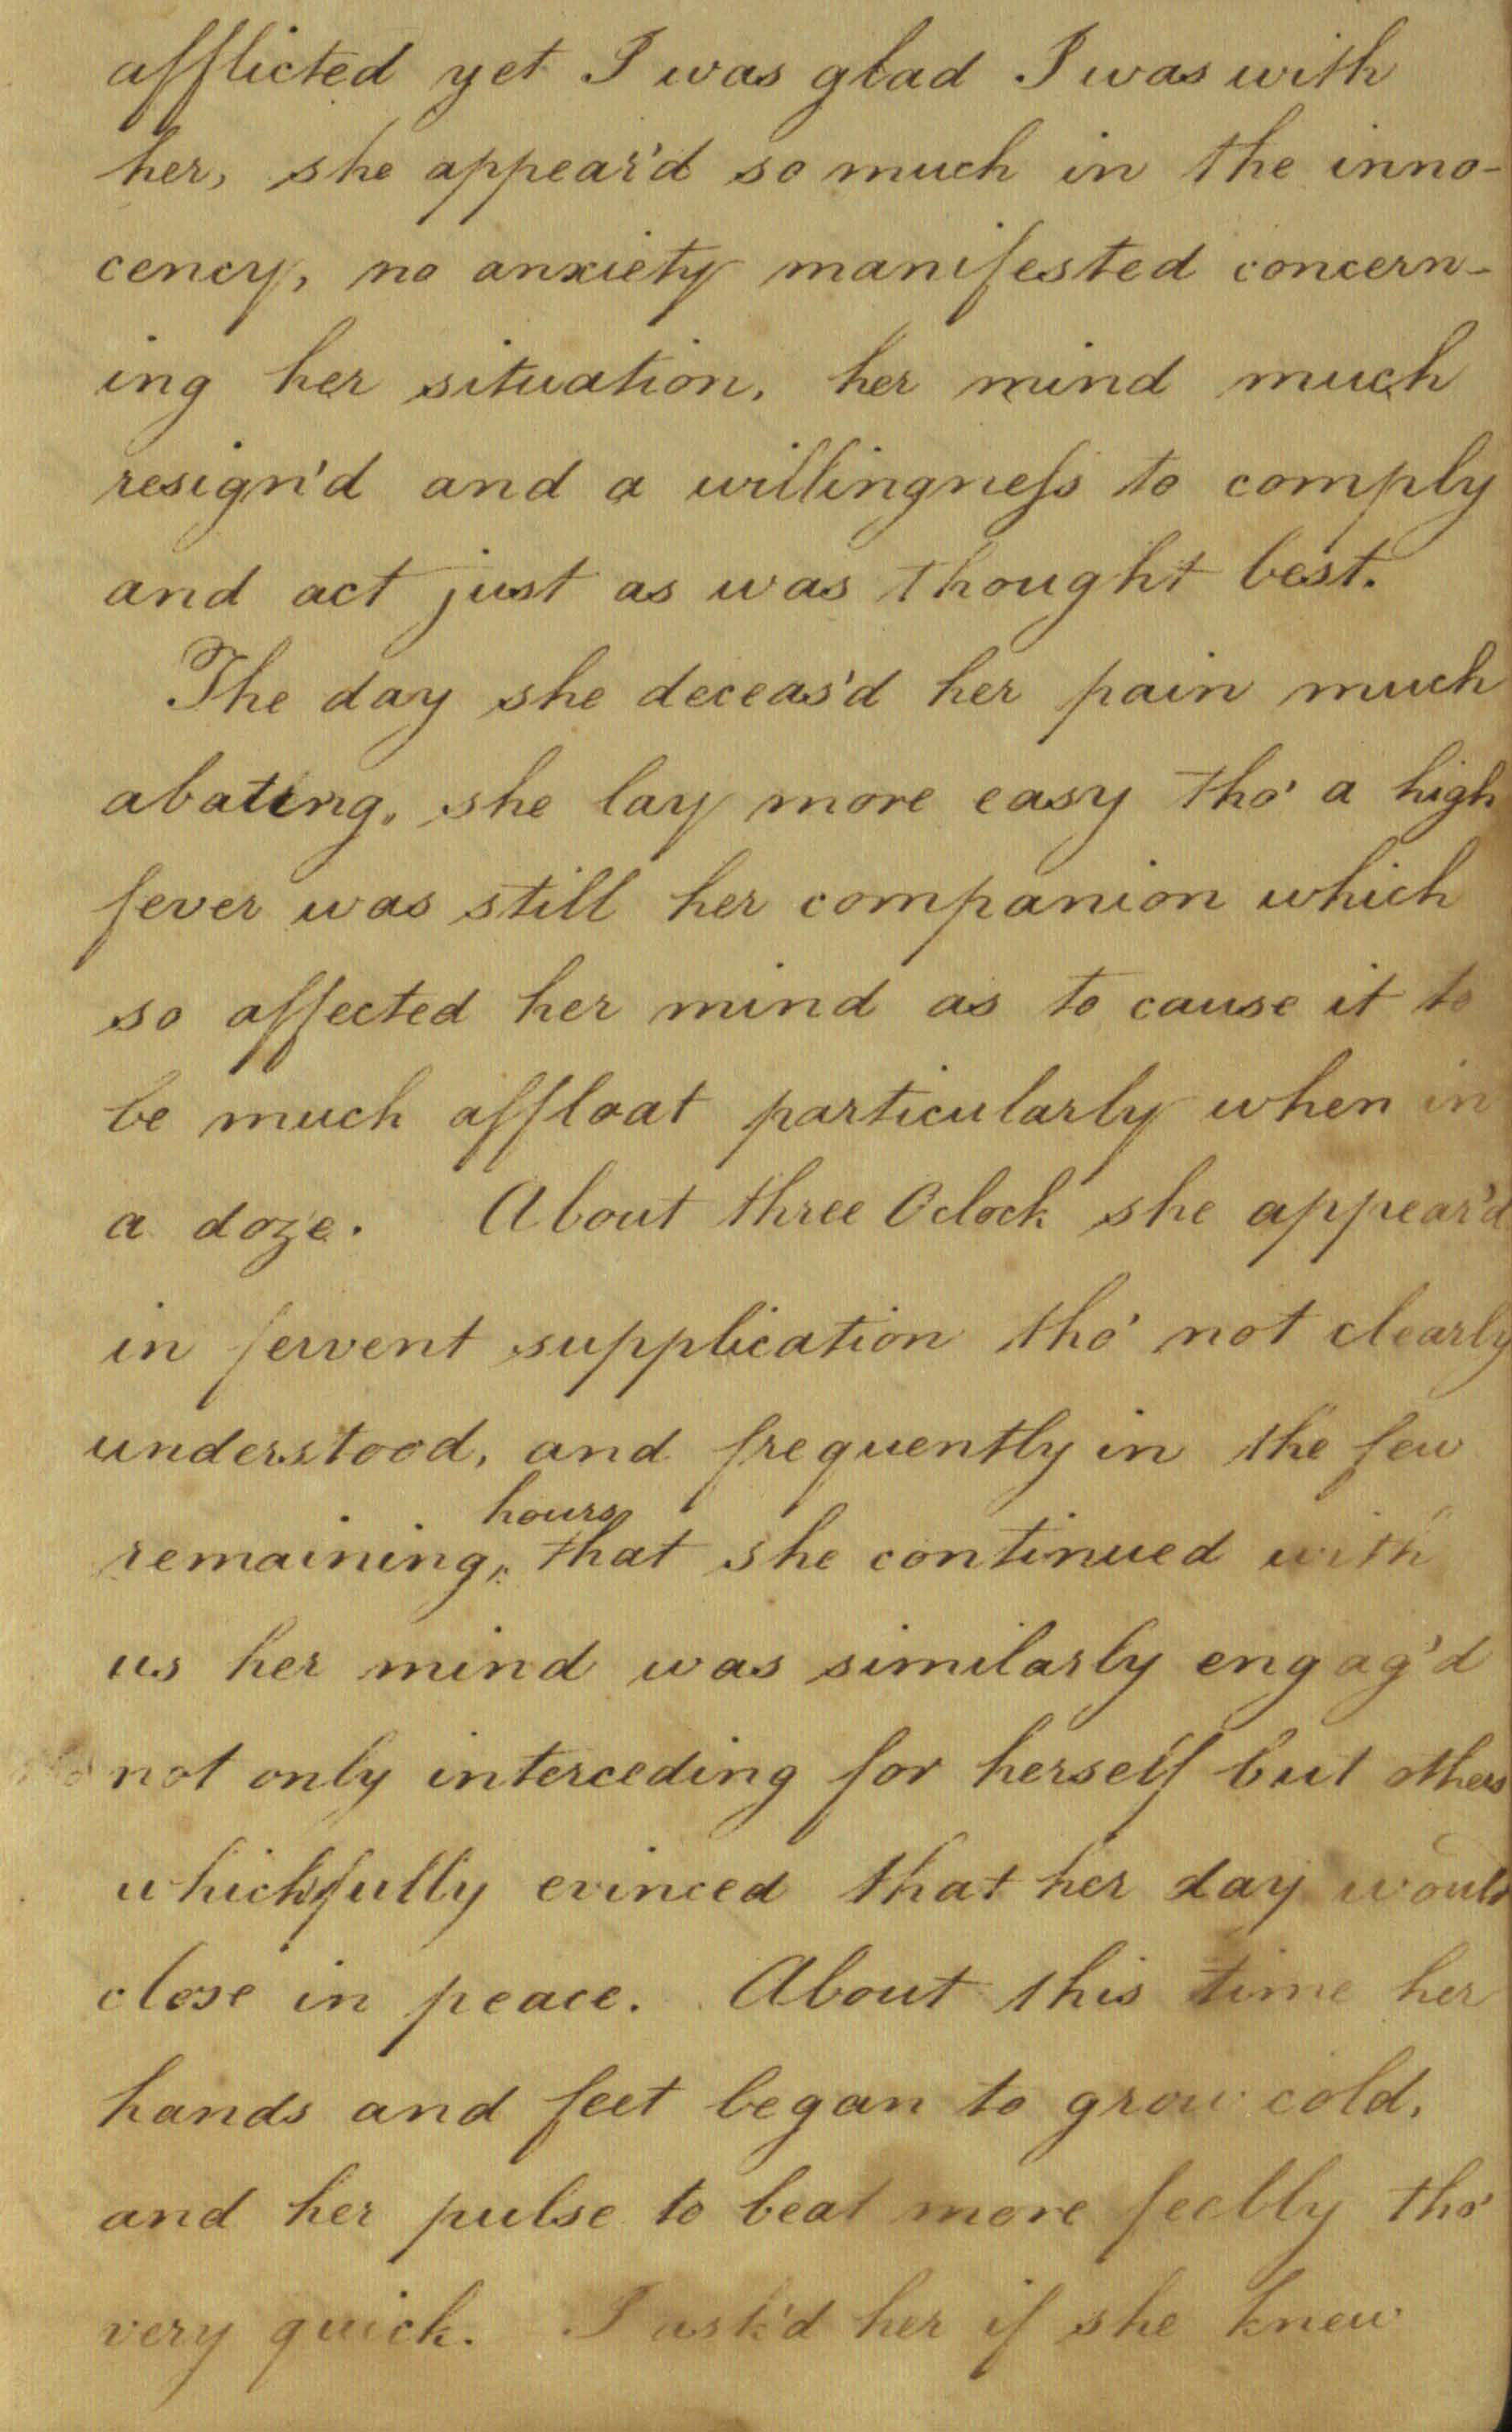 afflicted yet I was glad I was with
her, she appear'd so much in the inno-
cency, no anxiety manifested concern-
ing her situation, her mind much
resign'd and a willingneſs to comply
and act just as was thought best.
The day she deceas'd her pain much
abating, she lay more easy tho' a high
fever was still her companion which
so affected her mind as to cause it to
be much affloat particularly when in
a doze. About three Oclock she appear'd
in fervent supplication tho' not clearly
understood, and frequently in the few
hours
remaining, that she continued with
us her mind was similarly engag'd
not only interceding for herself but others
which fully evinced that her day would
close in peace. About this time her
hands and feet began to grow cold,
and her pulse to beat more feebly tho'
very quick. I ask'd her if she knew